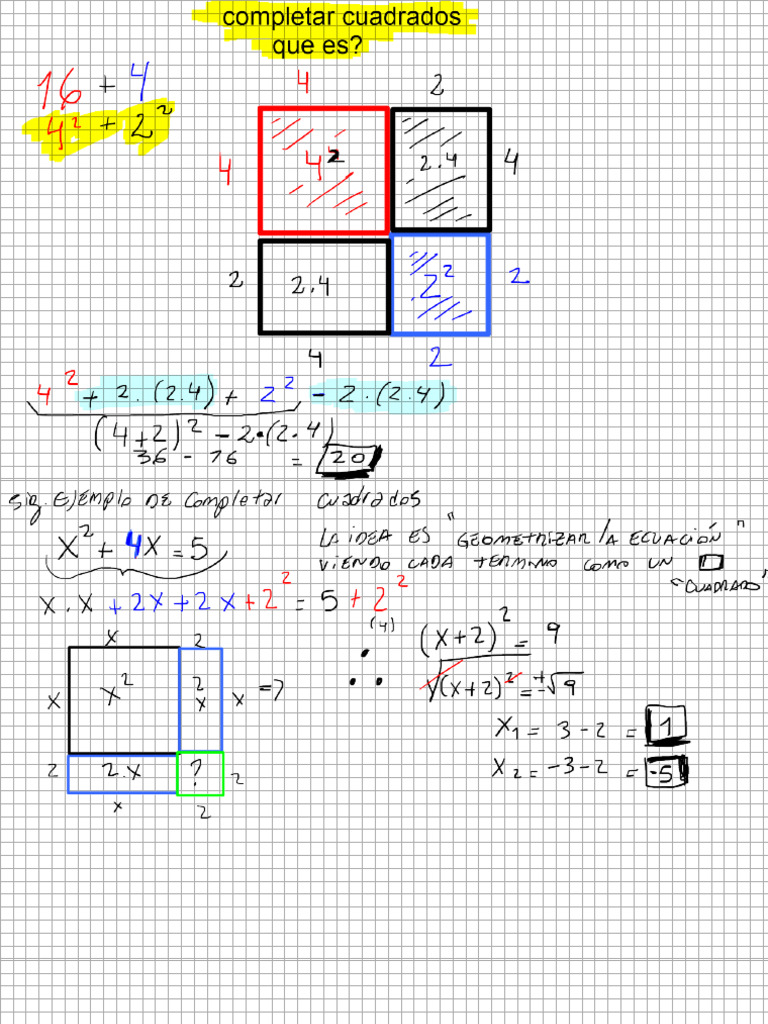 completar cuadrados
que es?
16 + 4
4² + 2²
4 2
4 4² 2.4 4
2 2.4 2² 2
4 2
4² + 2.(2.4) + 2² - 2.(2.4)
(4+2)² - 2.(2.4)
36 - 16 = 20
sig. Ejemplo DE completar cuadrados
x² + 4x = 5
LA IDEA ES "GEOMETRIZAR lA ECUACIÓN"
VIENDO CADA TERMINO COMO UN
"CUADRADO"
x.x + 2x + 2x + 2² = 5 + 2²
(4)
x 2
x x² 2x x =?
2 2.x ? 2
x 2
∴ (x+2)² = 9
√(x+2)² = ±√9
x₁ = 3 - 2 = 1
x₂ = -3 - 2 = -5